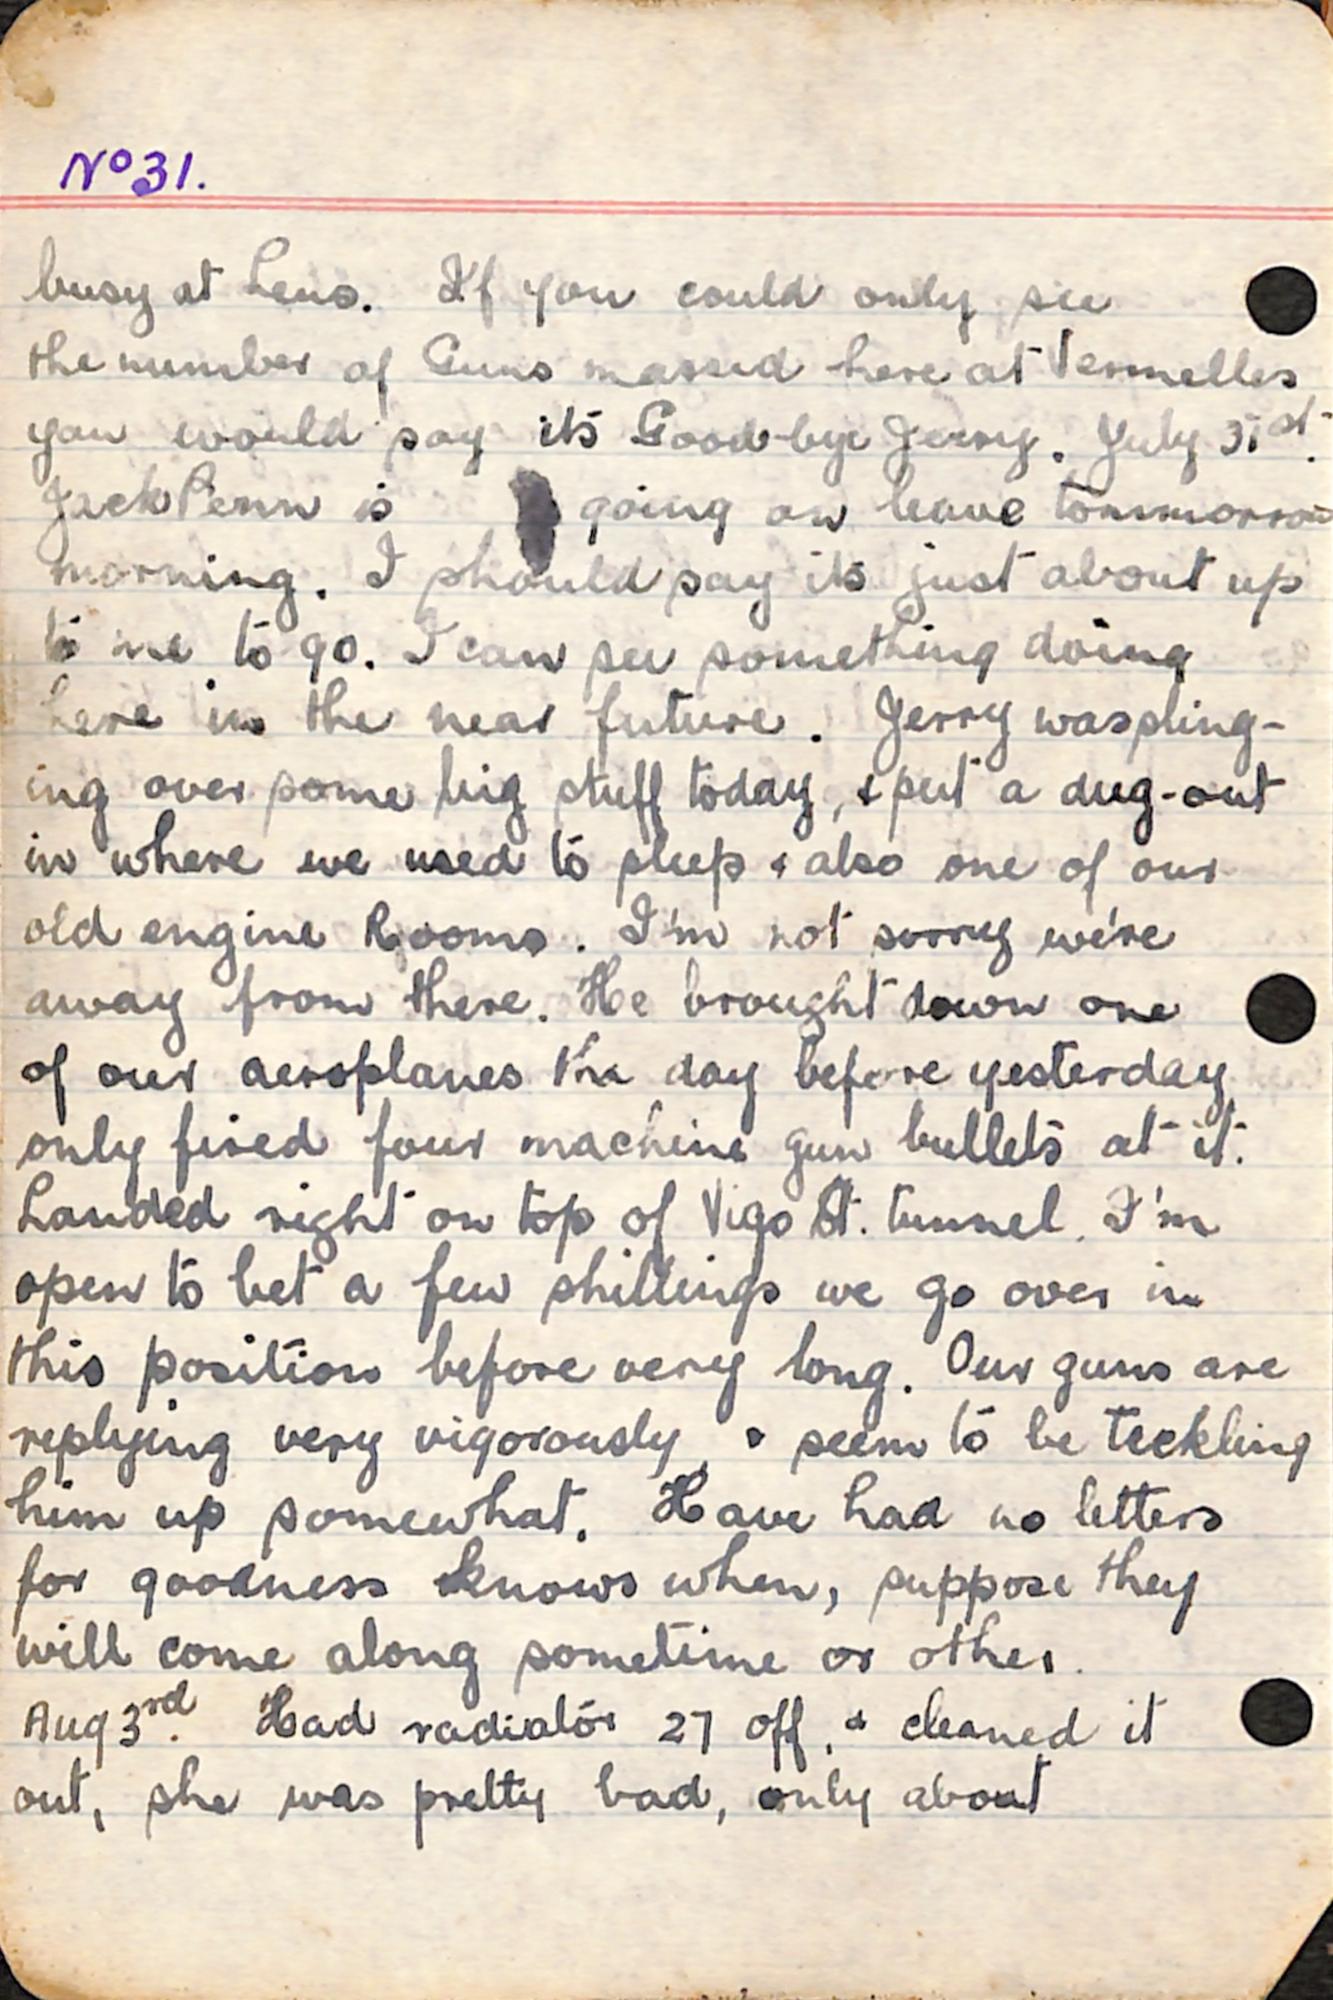 No 31.
busy at Lens. If you could only see
the number of Guns massed here at Vermelles
you would say its Good-bye Jerry. July 31st.
Jack Penn is going on leave tommorrow
morning. I should say its just about up
to me to go. I can see something doing
here in the near future. Jerry was pling-
ing over some big stuff today, & put a dug-out
in where we used to sleep & also one of our
old engine Rooms. I'm not sorry we're
away from there. He brought down one
of our aeroplanes the day before yesterday
only fired four machine gun bullets at it.
Landed right on top of Vigo St. tunnel. I'm
open to bet a few shillings we go over in
this position before very long. Our guns are
replying very vigorously, & seem to be teckling
him up somewhat. Have had no letters
for goodness knows when, suppose they
will come along sometime or other.
Aug 3rd. Had radiator 27 off, & cleaned it
out, she was pretty bad, only about